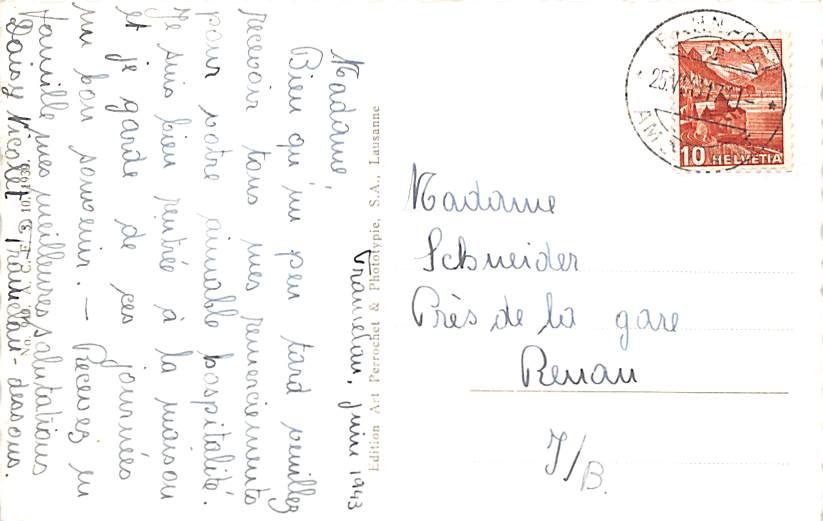 Tramelan, juin 1943
Madame
Bien qu'un peu tard veuillez
recevoir tous mes remerciements
pour votre aimable hospitalité.
Je suis bien rentrée à la maison
et je garde de ces journées
un bon souvenir. — Recevez en
famille mes meilleures salutations
Daisy Nicolet Tramelan-dessous.
Edition Art Perrochet & Phototypie, S.A., Lausanne
10
HELVETIA
Madame
Schneider
Près de la gare
Renan
J/B.